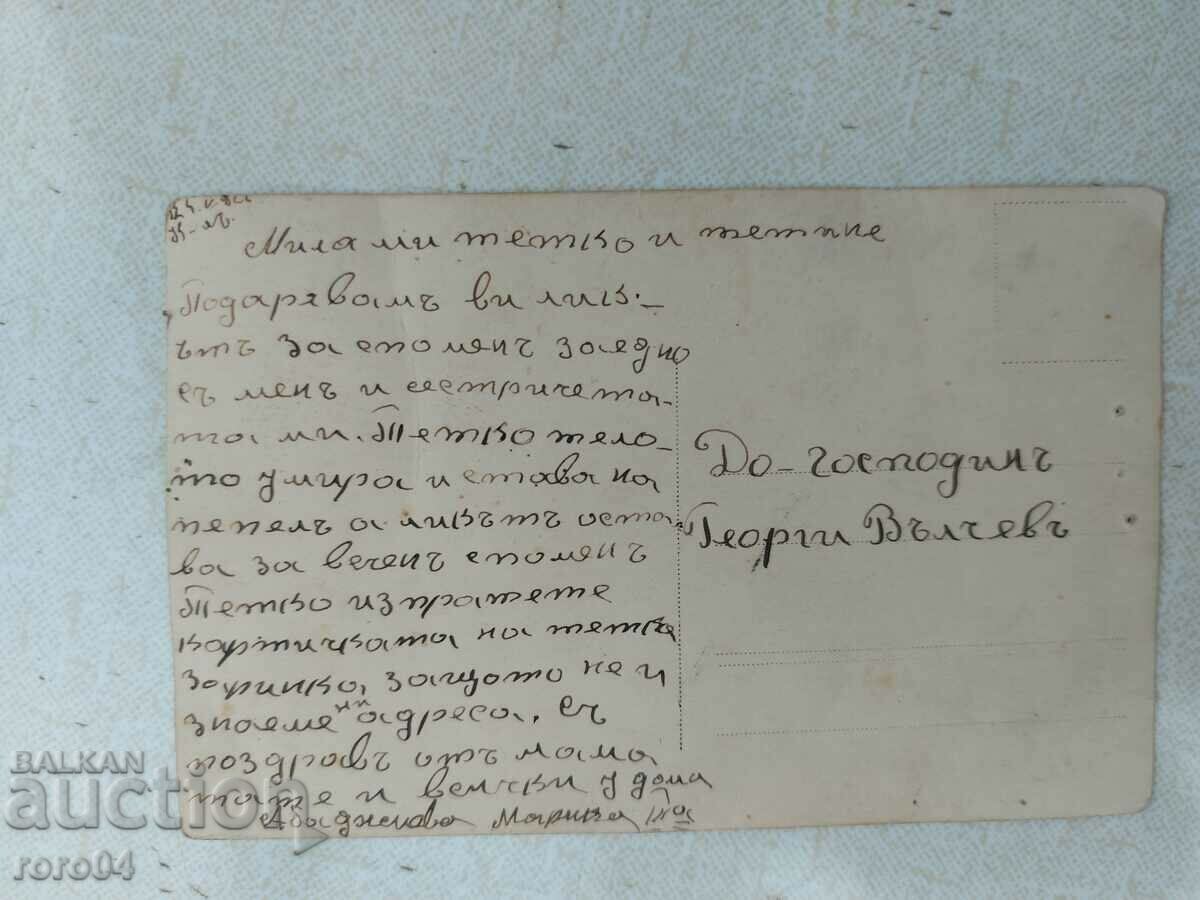 Мила ми тетко и тетине
Подарявамъ ви лик-
ътъ за споменъ заедно
съ менъ и сестричета-
та ми. Тетко тело-
то умира и става на
пепелъ а ликътъ оста-
ва за веченъ споменъ
Тетко изпратете
картичката на тетка
Заринка, защото не и
знаеме ни адреса, съ
поздравъ отъ мама
тате и всички у дома
Абаджиева Марика
До-господинъ
Георги Вълчевъ
BALKAN
auction
roro04